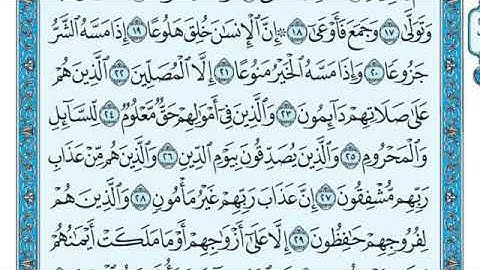 وَتَوَلَّىٰ ١٧ وَجَمَعَ فَأَوْعَىٰٓ ١٨ ۞ إِنَّ ٱلْإِنسَـٰنَ خُلِقَ هَلُوعًا ١٩ إِذَا مَسَّهُ ٱلشَّرُّ
جَزُوعًا ٢٠ وَإِذَا مَسَّهُ ٱلْخَيْرُ مَنُوعًا ٢١ إِلَّا ٱلْمُصَلِّينَ ٢٢ ٱلَّذِينَ هُمْ
عَلَىٰ صَلَاتِهِمْ دَآئِمُونَ ٢٣ وَٱلَّذِينَ فِىٓ أَمْوَٰلِهِمْ حَقٌّ مَّعْلُومٌ ٢٤ لِّلسَّآئِلِ
وَٱلْمَحْرُومِ ٢٥ وَٱلَّذِينَ يُصَدِّقُونَ بِيَوْمِ ٱلدِّينِ ٢٦ وَٱلَّذِينَ هُم مِّنْ عَذَابِ
رَبِّهِم مُّشْفِقُونَ ٢٧ إِنَّ عَذَابَ رَبِّهِمْ غَيْرُ مَأْمُونٍ ٢٨ وَٱلَّذِينَ هُمْ
لِفُرُوجِهِمْ حَـٰفِظُونَ ٢٩ إِلَّا عَلَىٰٓ أَزْوَٰجِهِمْ أَوْ مَا مَلَكَتْ أَيْمَـٰنُهُمْ